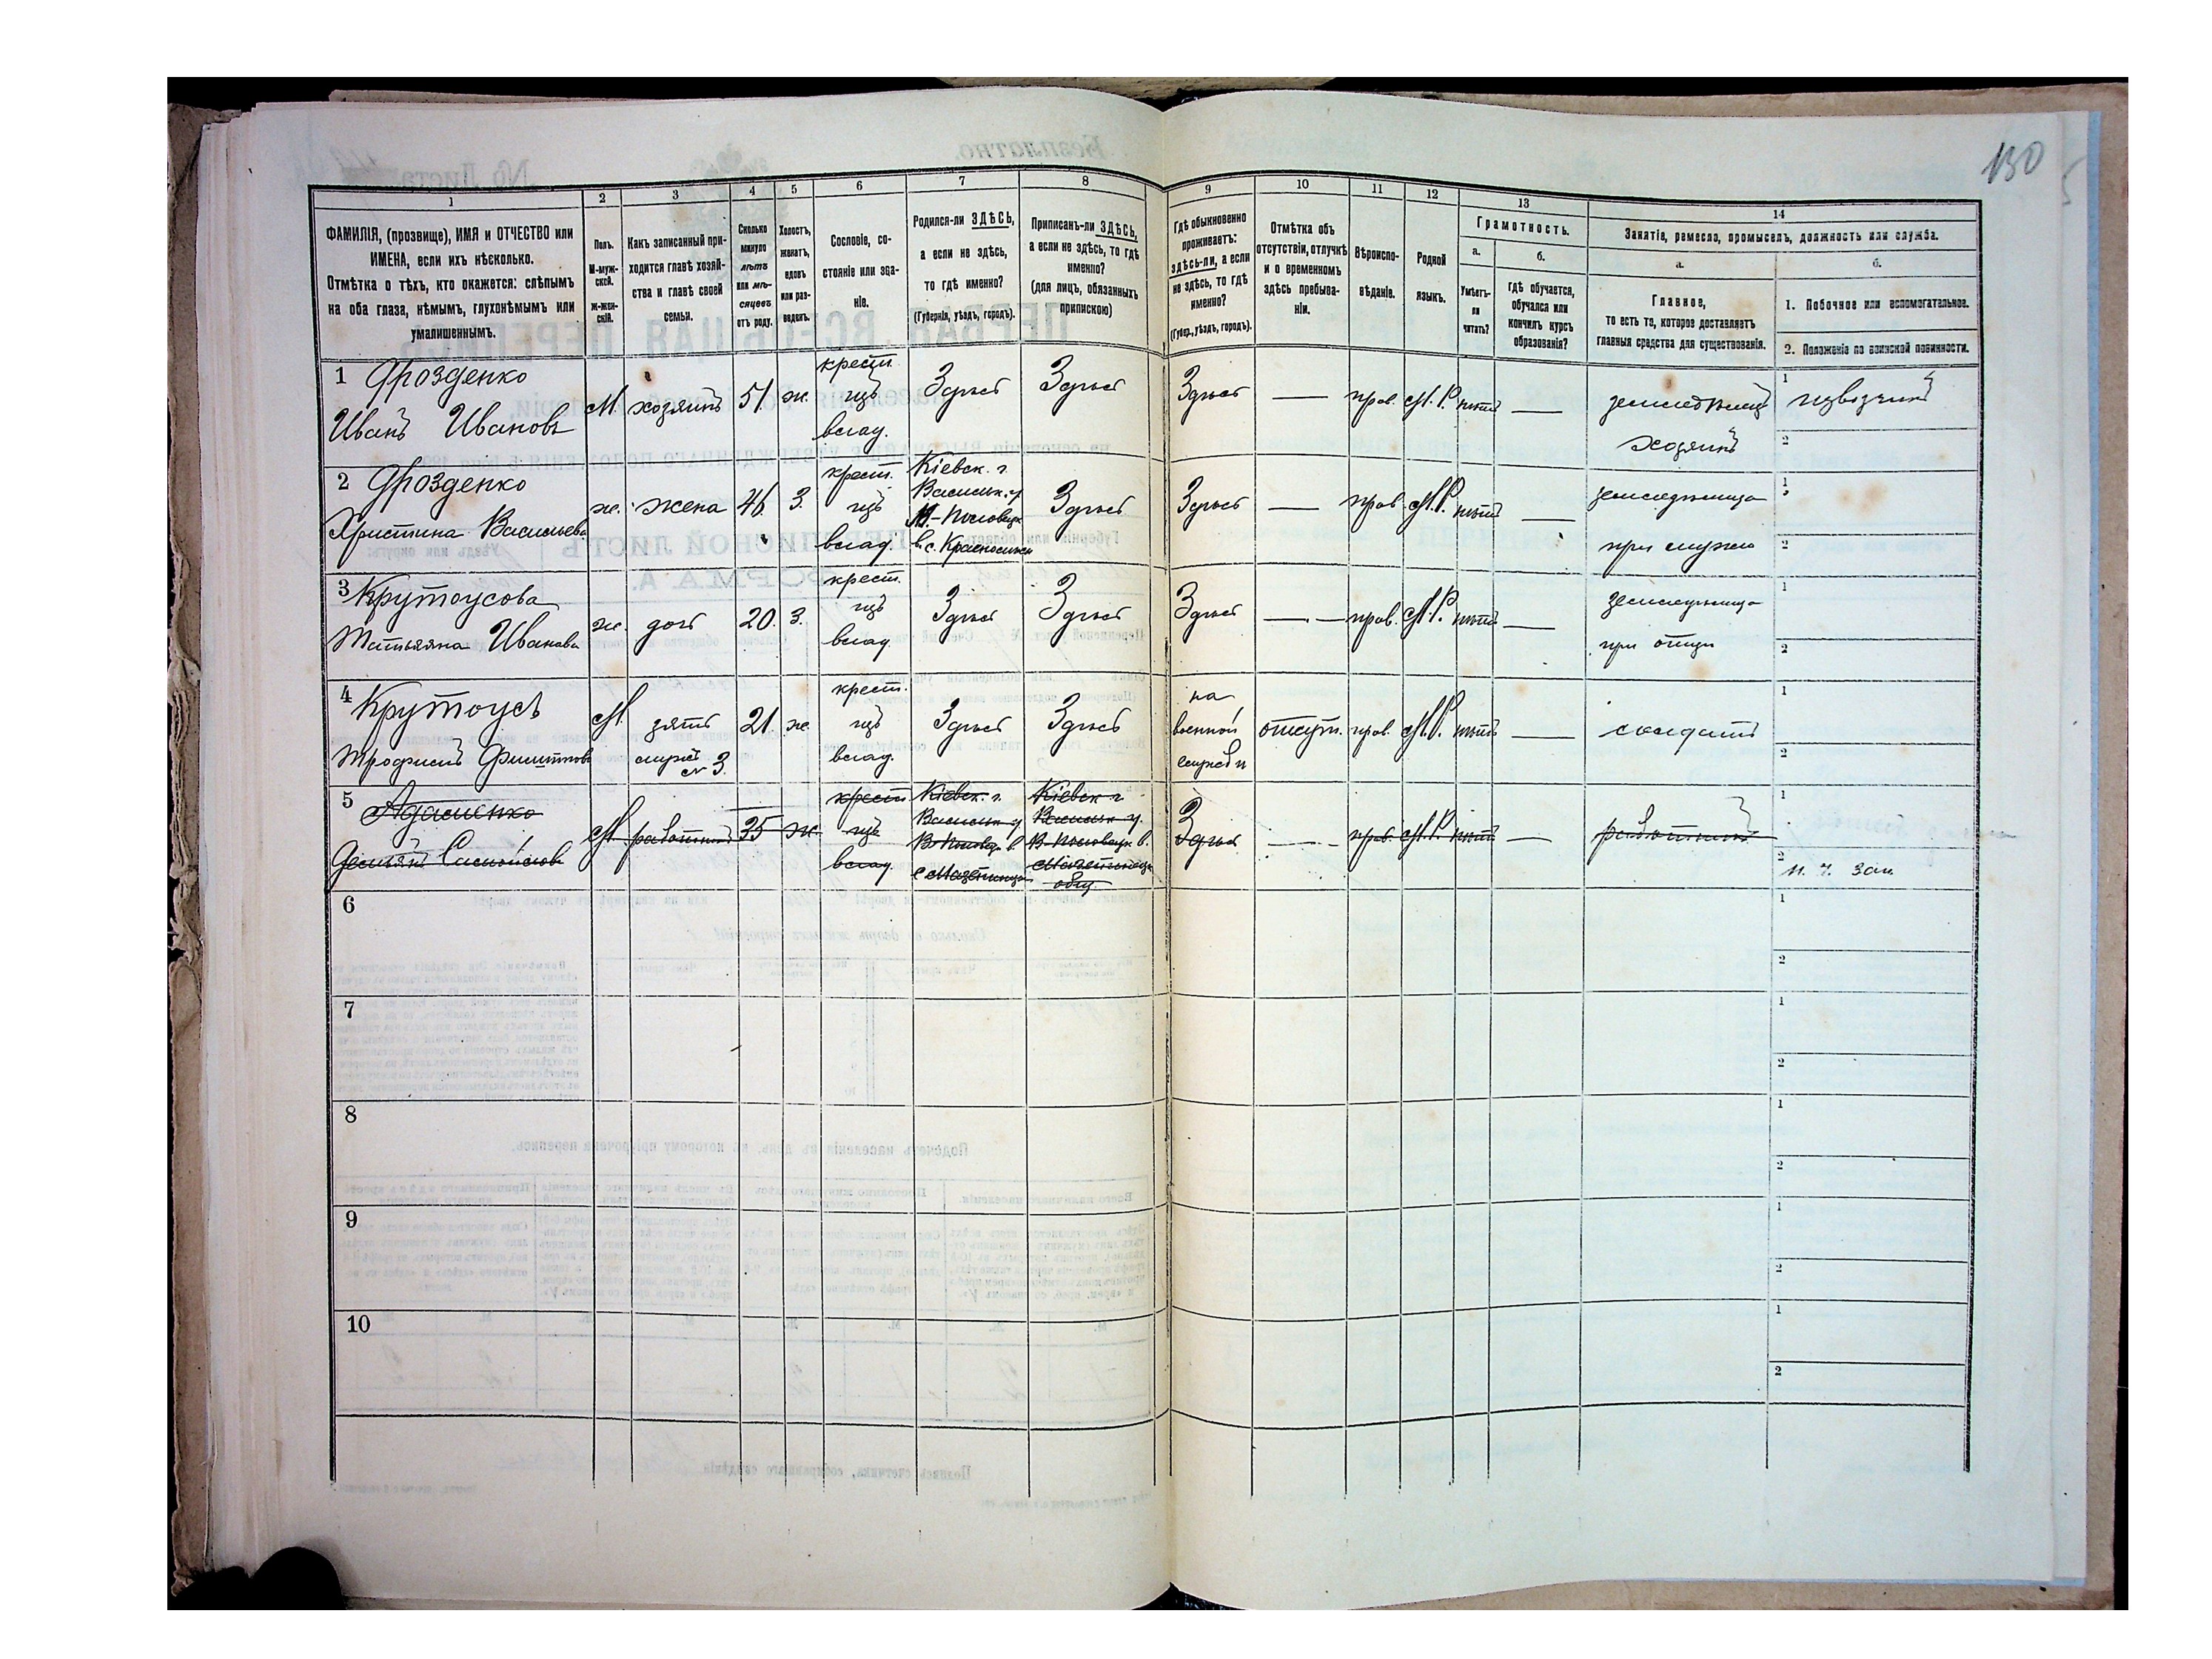 130
1
2
3
4
5
6
7
8
9
10
11
12
13
14
ФАМИЛІЯ, (прозвище), ИМЯ и ОТЧЕСТВО или
ИМЕНА, если ихъ нѣсколько.
Отмѣтка о тѣхъ, кто окажется: слѣпымъ
на оба глаза, нѣмымъ, глухонѣмымъ или
умалишеннымъ.
Полъ.
М-муж-
ской.
Ж-жен-
скій.
Какъ записанный при-
ходится главѣ хозяй-
ства и главѣ своей
семьи.
Сколько
минуло
лѣтъ
или мѣ-
сяцевъ
отъ роду.
Холостъ,
женатъ,
вдовъ
или раз-
веденъ.
Сословіе, со-
стояніе или зва-
ніе.
Родился-ли ЗДѢСЬ,
а если не здѣсь,
то гдѣ именно?
(Губернія, уѣздъ, городъ).
Приписанъ-ли ЗДѢСЬ,
а если не здѣсь, то гдѣ
именно?
(для лицъ, обязанныхъ
припискою)
Гдѣ обыкновенно
проживаетъ:
здѣсь-ли, а если
не здѣсь, то гдѣ
именно?
(Губер., уѣздъ, городъ).
Отмѣтка объ
отсутствіи, отлучкѣ
и о временномъ
здѣсь пребыва-
ніи.
Вѣроиспо-
вѣданіе.
Родной
языкъ.
Грамотность.
а.
б.
Умѣетъ-
ли
читать?
Гдѣ обучается,
обучался или
кончилъ курсъ
образованія?
Занятіе, ремесло, промыселъ, должность или служба.
а.
б.
Главное,
то есть то, которое доставляетъ
главныя средства для существованія.
1. Побочное или вспомогательное.
2. Положеніе по воинской повинности.
1 Дрозденко
Иванъ Ивановъ
М. хозяинъ 51. ж.
крест.
изъ
влад.
Здѣсь Здѣсь Здѣсь — прав. М.Р. нѣтъ —
земледѣлецъ
хозяинъ
1 извозчикъ
2
2 Дрозденко
Христина Васильева
ж. жена 46 З.
крест.
изъ
влад.
Кіевск. г.
Васильк. у.
с. Красноселки
Здѣсь Здѣсь — прав. М.Р. нѣтъ —
земледѣлица
при мужѣ
1
2
3 Крутоусова
Татьяна Иванова
ж. дочь 20. З.
крест.
изъ
влад.
Здѣсь Здѣсь Здѣсь — прав. М.Р. нѣтъ —
земледѣлица
при отцѣ
1
2
4 Крутоусъ
Трофимъ
М. зять
№ 3.
21. ж.
крест.
изъ
влад.
Здѣсь Здѣсь
на
военной
службѣ
отсут. прав. М.Р. нѣтъ —
солдатъ
1
2
5 Адаменко
Демьянъ
М. работникъ 35 ж.
крест
изъ
влад.
Кіевск. г.
Васильк. у
Кіевск г.
Васильк у.
общ.
Здѣсь — прав. М.Р. нѣтъ —
работникъ
1
2
6
1
2
7
1
2
8
1
2
9
1
2
10
1
2